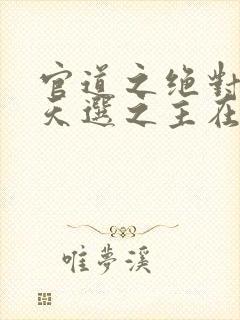 官道之绝對
天選之主在
唯夢溪